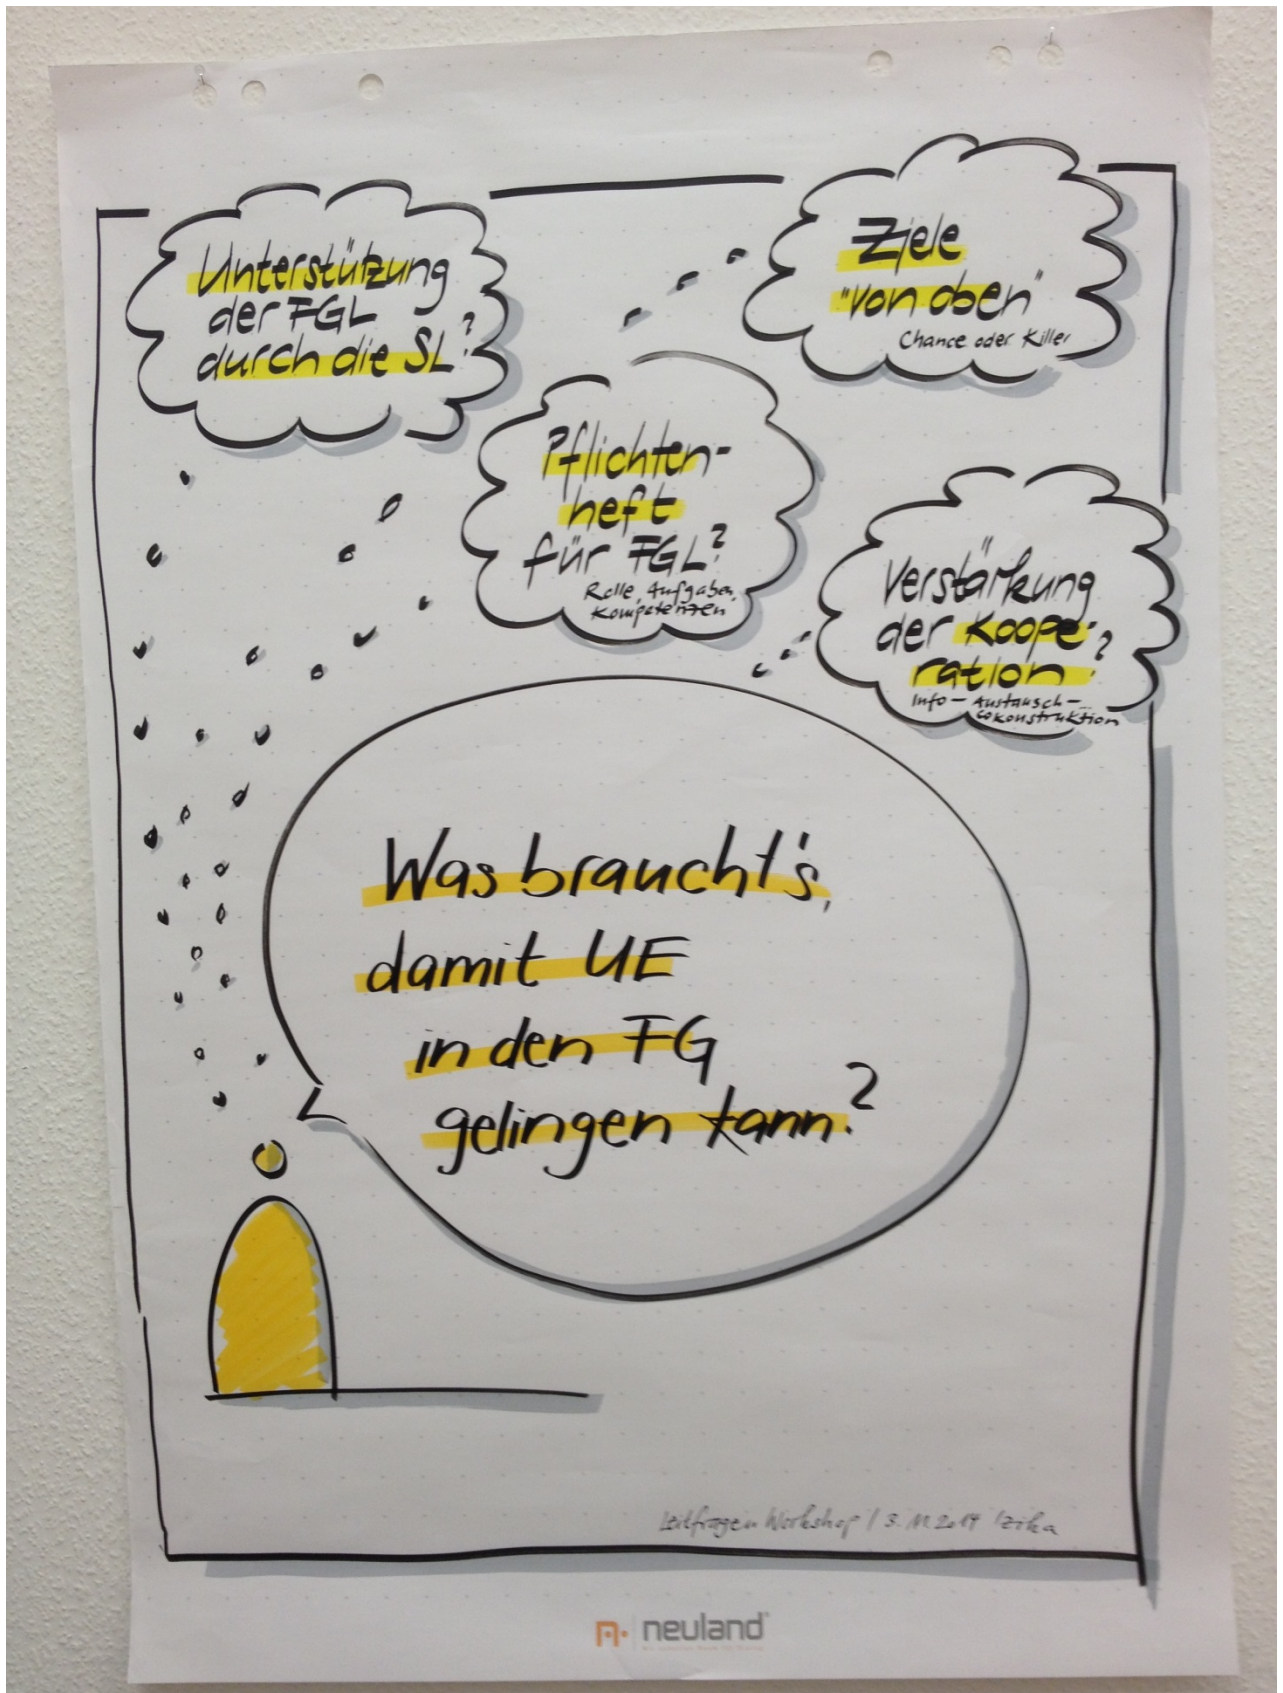 Unterstützung
der FGL
durch die SL?
Ziele
"von oben"
Chance oder Killer
Pflichten-
heft
für FGL?
Rolle, Aufgaben,
Kompetenzen
Verstärkung
der Koope-
ration?
Info - Austausch -
Cokonstruktion
Was braucht's,
damit UE
in den FG
gelingen kann?
Leitfragen Workshop / 3. 11 2014 /
neuland